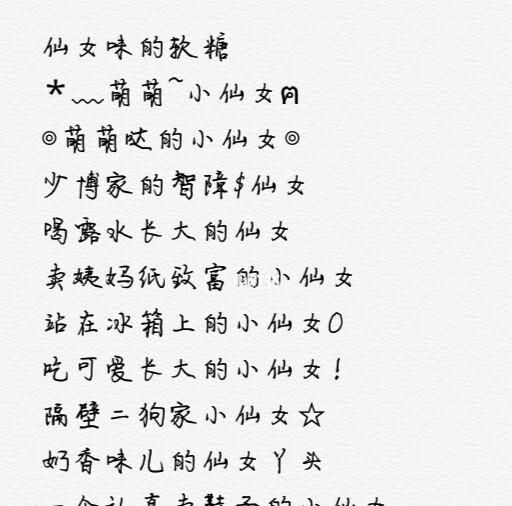 仙女味的软糖
*﹏萌萌~小仙女ฅ
◎萌萌哒的小仙女◎
少博家的智障$仙女
喝露水长大的仙女
卖姨妈纸致富的小仙女
站在冰箱上的小仙女0
吃可爱长大的小仙女!
隔壁二狗家小仙女☆
奶香味儿的仙女丫头
的小仙女